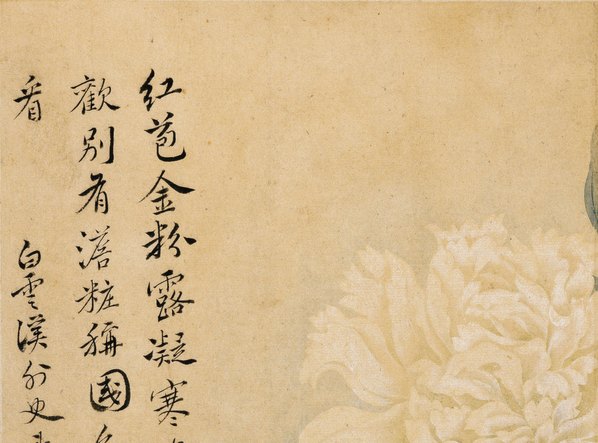 紅苞金粉露凝寒
歡別有澹粧稱國色
看
白雲溪外史